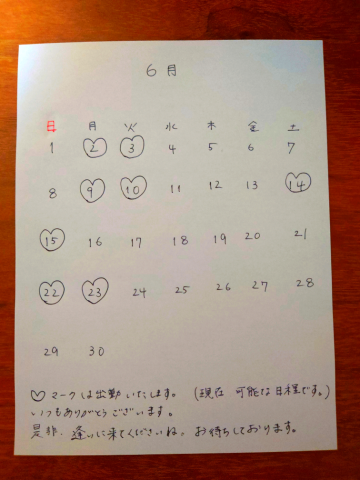 6月
日 月 火 水 木 金 土
1 2 3 4 5 6 7
8 9 10 11 12 13 14
15 16 17 18 19 20 21
22 23 24 25 26 27 28
29 30
♡マークは出勤いたします。(現在 可能な日程です。)
いつもありがとうございます。
是非、逢いに来てくださいね。お待ちしております。